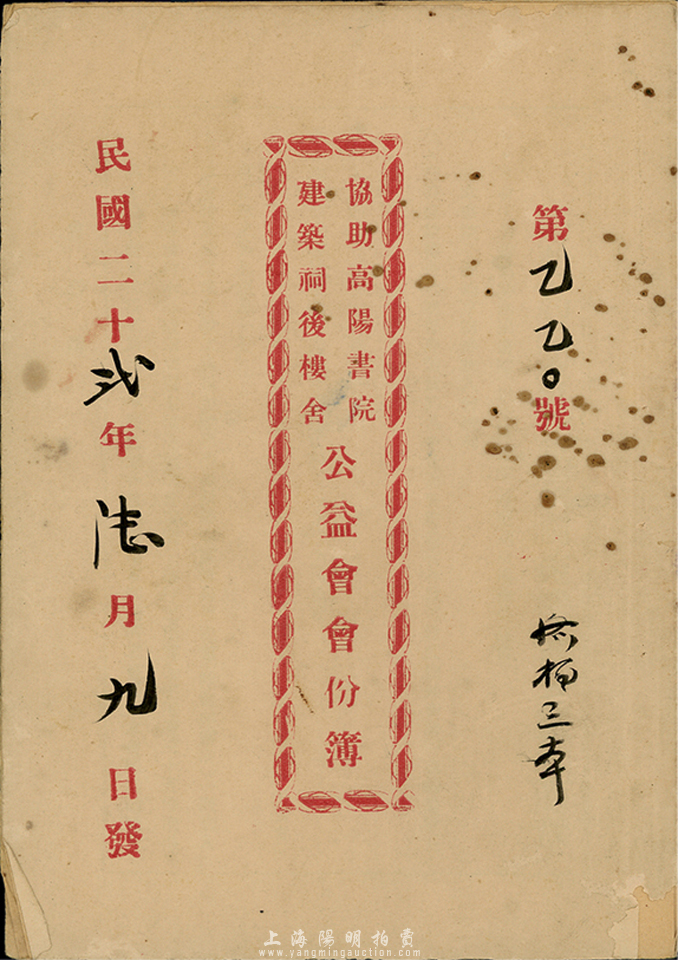 第乙乙〇號
協助高陽書院
建築祠後樓舍
公益會會份簿
民國二十弍年陸月九日發
上海陽明拍賣
www.yangmingauction.com